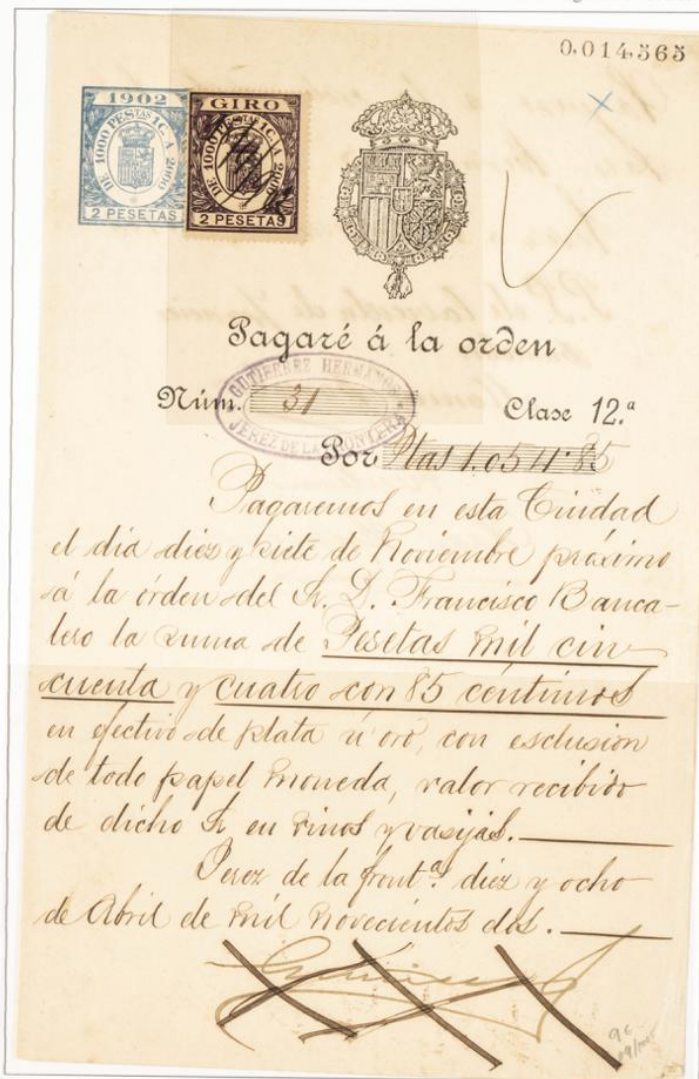 0.014.565
1902
DE 1000 PESTAS 1C. A 2000
2 PESETAS
GIRO
DE 1000 PESTAS 1C. A 2000
2 PESETAS
Pagaré á la orden
GUTIERREZ HERMANOS
JEREZ DE LA FRONTERA
Núm. 31 Clase 12.ª
Por Ptas 1.054'85
Pagaremos en esta Ciudad
el dia diez y siete de Noviembre próximo
á la órden del Sr. D. Francisco Banca-
lero la suma de Pesetas mil cin-
cuenta y cuatro con 85 céntimos
en efectivo de plata ú oro, con esclusion
de todo papel moneda, valor recibido
de dicho Sr en vinos y vasijas.
Jerez de la front.ª diez y ocho
de Abril de mil novecientos dos.